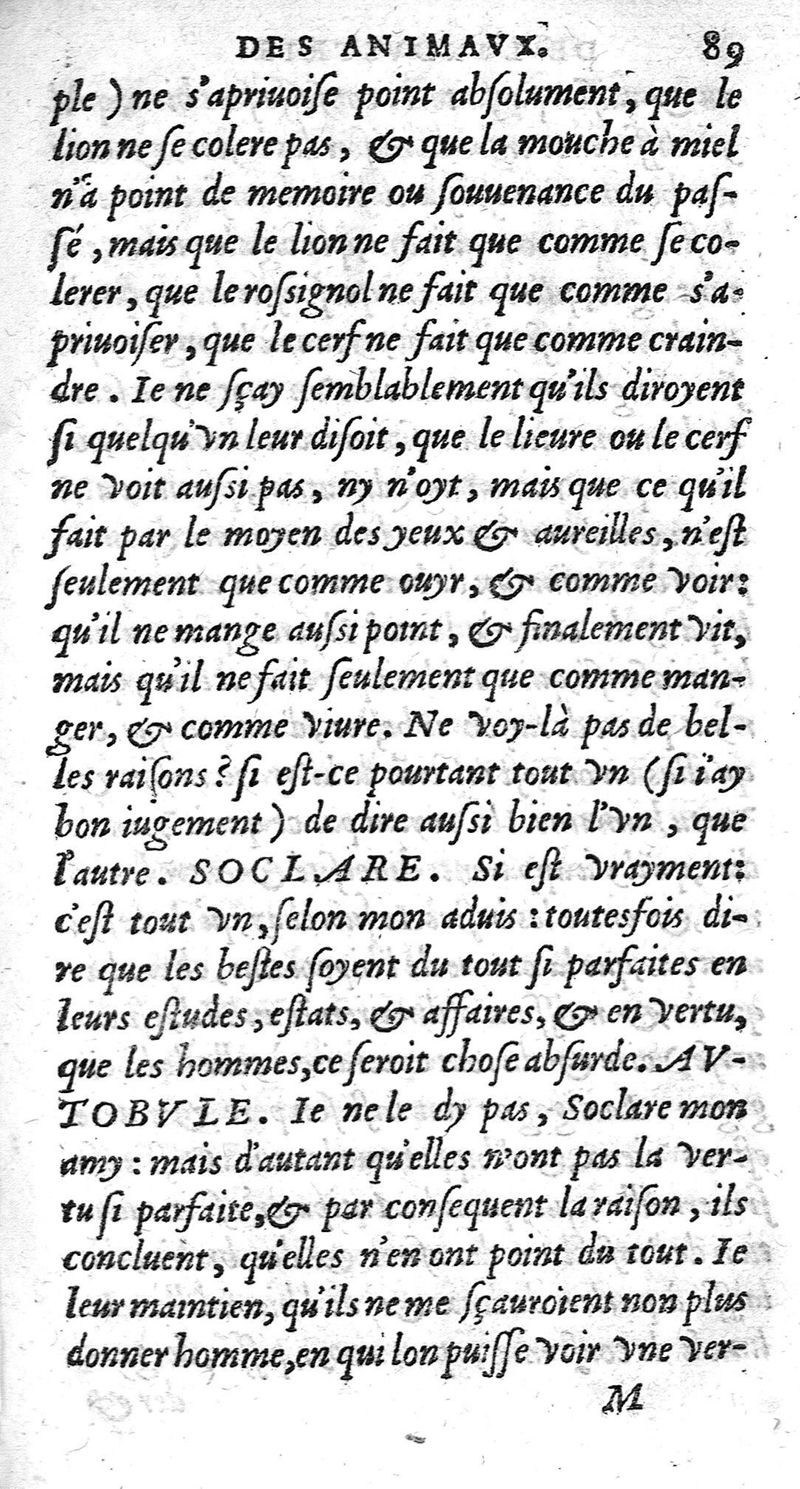 DES ANIMAVX. 89
ple ) ne s'apriuoiſe point abſolument, que le
lion ne ſe colere pas, & que la mouche à miel
n'a point de memoire ou ſouuenance du paſ-
ſé, mais que le lion ne fait que comme ſe co-
lerer, que le roſsignol ne fait que comme s'a-
priuoiſer, que le cerf ne fait que comme crain-
dre. Ie ne ſçay ſemblablement qu'ils diroyent
ſi quelqu'vn leur diſoit, que le lieure ou le cerf
ne voit auſsi pas, ny n'oyt, mais que ce qu'il
fait par le moyen des yeux & aureilles, n'eſt
ſeulement que comme ouyr, & comme voir:
qu'il ne mange auſsi point, & finalement vit,
mais qu'il ne fait ſeulement que comme man-
ger, & comme viure. Ne voy-là pas de bel-
les raiſons? ſi eſt-ce pourtant tout vn (ſi i'ay
bon iugement) de dire auſsi bien l'vn, que
l'autre. SOCLARE. Si eſt vrayment:
c'eſt tout vn, ſelon mon aduis: toutesfois di-
re que les beſtes ſoyent du tout ſi parfaites en
leurs eſtudes, eſtats, & affaires, & en vertu,
que les hommes, ce ſeroit choſe abſurde. AV-
TOBVLE. Ie ne le dy pas, Soclare mon
amy: mais d'autant qu'elles n'ont pas la ver-
tu ſi parfaite, & par conſequent la raiſon, ils
concluent, qu'elles n'en ont point du tout. Ie
leur maintien, qu'ils ne me ſçauroient non plus
donner homme, en qui lon puiſſe voir vne ver-
M